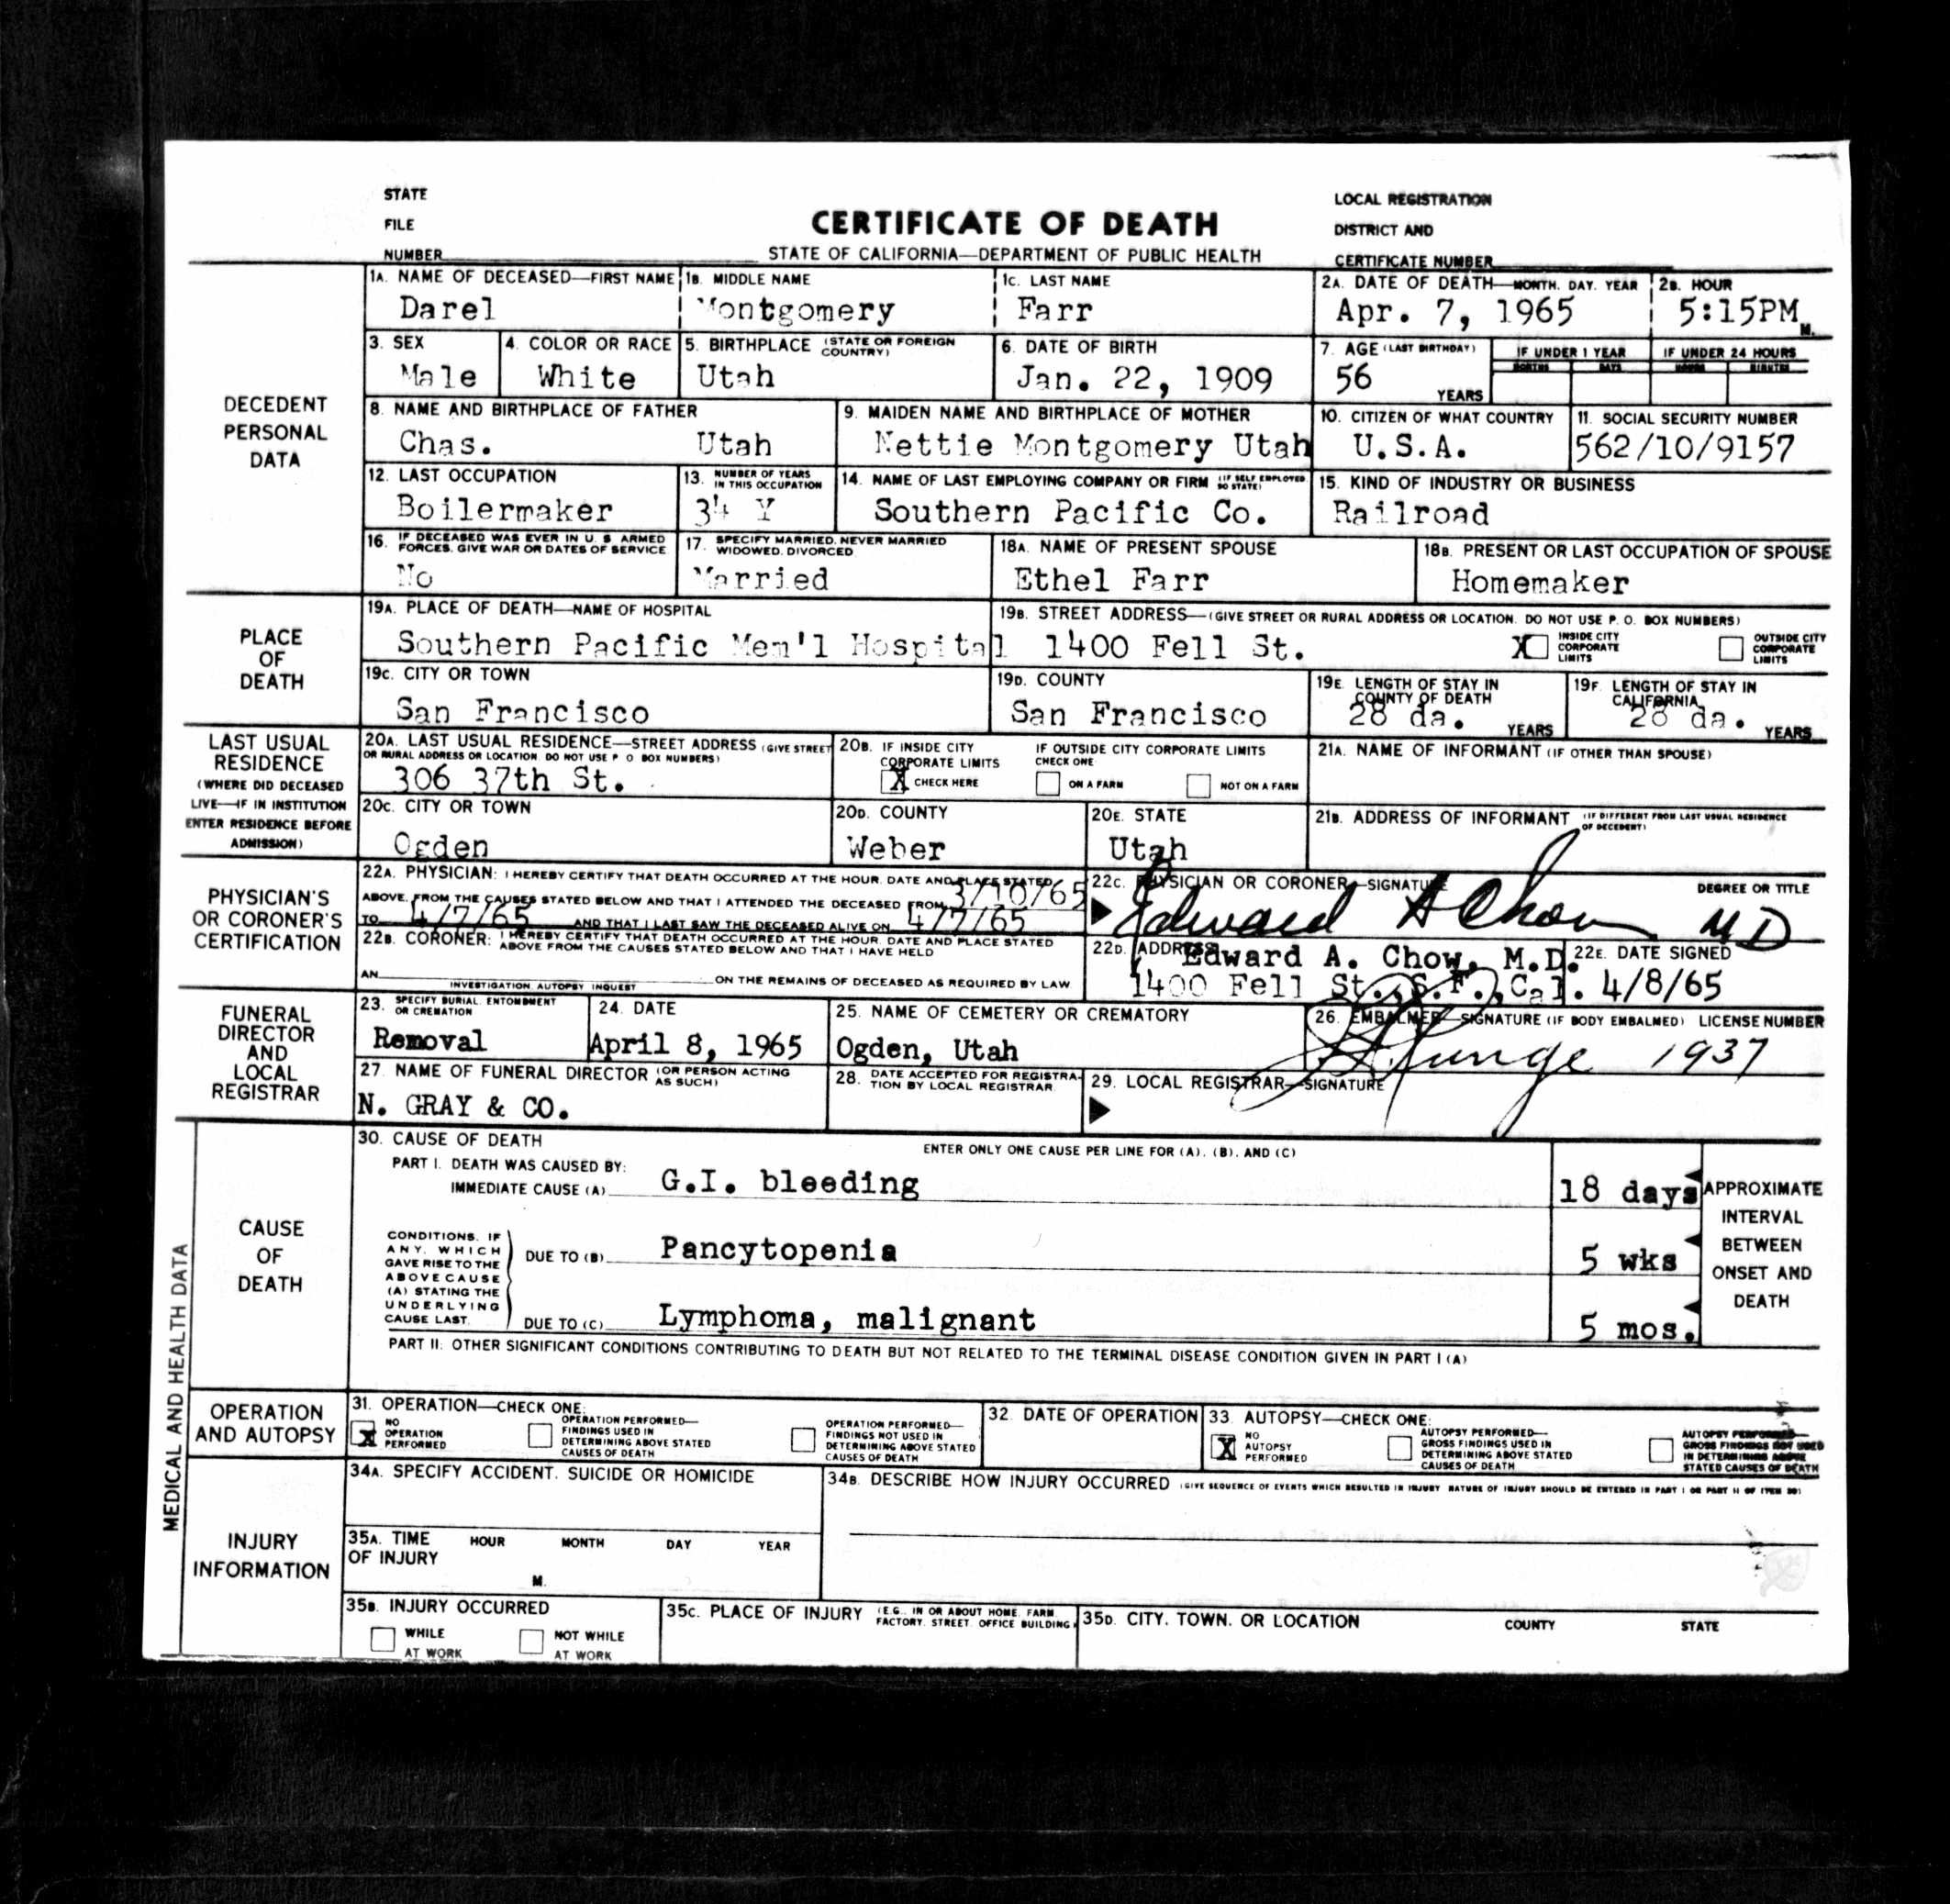 STATE
FILE
NUMBER
CERTIFICATE OF DEATH
STATE OF CALIFORNIA—DEPARTMENT OF PUBLIC HEALTH
LOCAL REGISTRATION
DISTRICT AND
CERTIFICATE NUMBER
DECEDENT
PERSONAL
DATA
1A. NAME OF DECEASED—FIRST NAME
Darel
1B. MIDDLE NAME
Montgomery
1C. LAST NAME
Farr
2A. DATE OF DEATH—MONTH. DAY. YEAR
Apr. 7, 1965
2B. HOUR
5:15PM M.
3. SEX
Male
4. COLOR OR RACE
White
5. BIRTHPLACE (STATE OR FOREIGN COUNTRY)
Utah
6. DATE OF BIRTH
Jan. 22, 1909
7. AGE (LAST BIRTHDAY)
56 YEARS
IF UNDER 1 YEAR
MONTHS DAYS
IF UNDER 24 HOURS
HOURS MINUTES
8. NAME AND BIRTHPLACE OF FATHER
Chas. Utah
9. MAIDEN NAME AND BIRTHPLACE OF MOTHER
Nettie Montgomery Utah
10. CITIZEN OF WHAT COUNTRY
U.S.A.
11. SOCIAL SECURITY NUMBER
562/10/9157
12. LAST OCCUPATION
Boilermaker
13. NUMBER OF YEARS IN THIS OCCUPATION
34 Y
14. NAME OF LAST EMPLOYING COMPANY OR FIRM (IF SELF EMPLOYED SO STATE)
Southern Pacific Co.
15. KIND OF INDUSTRY OR BUSINESS
Railroad
16. IF DECEASED WAS EVER IN U. S. ARMED FORCES, GIVE WAR OR DATES OF SERVICE
No
17. SPECIFY MARRIED, NEVER MARRIED WIDOWED, DIVORCED
Married
18A. NAME OF PRESENT SPOUSE
Ethel Farr
18B. PRESENT OR LAST OCCUPATION OF SPOUSE
Homemaker
PLACE
OF
DEATH
19A. PLACE OF DEATH—NAME OF HOSPITAL
Southern Pacific Mem'l Hospital
19B. STREET ADDRESS—(GIVE STREET OR RURAL ADDRESS OR LOCATION. DO NOT USE P. O. BOX NUMBERS)
1400 Fell St.
X INSIDE CITY CORPORATE LIMITS
OUTSIDE CITY CORPORATE LIMITS
19C. CITY OR TOWN
San Francisco
19D. COUNTY
San Francisco
19E. LENGTH OF STAY IN COUNTY OF DEATH
28 da. YEARS
19F. LENGTH OF STAY IN CALIFORNIA
28 da. YEARS
LAST USUAL
RESIDENCE
(WHERE DID DECEASED
LIVE—IF IN INSTITUTION
ENTER RESIDENCE BEFORE
ADMISSION)
20A. LAST USUAL RESIDENCE—STREET ADDRESS (GIVE STREET
OR RURAL ADDRESS OR LOCATION. DO NOT USE P. O. BOX NUMBERS)
306 37th St.
20B. IF INSIDE CITY CORPORATE LIMITS
X CHECK HERE
IF OUTSIDE CITY CORPORATE LIMITS
CHECK ONE
ON A FARM
NOT ON A FARM
21A. NAME OF INFORMANT (IF OTHER THAN SPOUSE)
20C. CITY OR TOWN
Ogden
20D. COUNTY
Weber
20E. STATE
Utah
21B. ADDRESS OF INFORMANT (IF DIFFERENT FROM LAST USUAL RESIDENCE OF DECEDENT)
PHYSICIAN'S
OR CORONER'S
CERTIFICATION
22A. PHYSICIAN: I HEREBY CERTIFY THAT DEATH OCCURRED AT THE HOUR. DATE AND PLACE STATED
ABOVE. FROM THE CAUSES STATED BELOW AND THAT I ATTENDED THE DECEASED FROM 3/10/65
TO 4/7/65 AND THAT I LAST SAW THE DECEASED ALIVE ON 4/7/65
22B. CORONER: I HEREBY CERTIFY THAT DEATH OCCURRED AT THE HOUR. DATE AND PLACE STATED
ABOVE FROM THE CAUSES STATED BELOW AND THAT I HAVE HELD
AN ON THE REMAINS OF DECEASED AS REQUIRED BY LAW
INVESTIGATION, AUTOPSY, INQUEST
22C. PHYSICIAN OR CORONER—SIGNATURE DEGREE OR TITLE
Edward A Chow MD
22D. ADDRESS
Edward A. Chow, M.D.
1400 Fell St., S.F., Cal.
22E. DATE SIGNED
4/8/65
FUNERAL
DIRECTOR
AND
LOCAL
REGISTRAR
23. SPECIFY BURIAL, ENTOMBMENT OR CREMATION
Removal
24. DATE
April 8, 1965
25. NAME OF CEMETERY OR CREMATORY
Ogden, Utah
26. EMBALMER—SIGNATURE (IF BODY EMBALMED) LICENSE NUMBER
1937
27. NAME OF FUNERAL DIRECTOR (OR PERSON ACTING AS SUCH)
N. GRAY & CO.
28. DATE ACCEPTED FOR REGISTRATION BY LOCAL REGISTRAR
29. LOCAL REGISTRAR—SIGNATURE
MEDICAL AND HEALTH DATA
CAUSE
OF
DEATH
30. CAUSE OF DEATH
ENTER ONLY ONE CAUSE PER LINE FOR (A). (B). AND (C)
PART I. DEATH WAS CAUSED BY:
IMMEDIATE CAUSE (A) G.I. bleeding 18 days
CONDITIONS. IF
ANY. WHICH
GAVE RISE TO THE
ABOVE CAUSE
(A) STATING THE
UNDERLYING
CAUSE LAST.
DUE TO (B) Pancytopenia 5 wks
DUE TO (C) Lymphoma, malignant 5 mos.
APPROXIMATE
INTERVAL
BETWEEN
ONSET AND
DEATH
PART II: OTHER SIGNIFICANT CONDITIONS CONTRIBUTING TO DEATH BUT NOT RELATED TO THE TERMINAL DISEASE CONDITION GIVEN IN PART I (A)
OPERATION
AND AUTOPSY
31. OPERATION—CHECK ONE:
X NO OPERATION PERFORMED
OPERATION PERFORMED—FINDINGS USED IN DETERMINING ABOVE STATED CAUSES OF DEATH
OPERATION PERFORMED—FINDINGS NOT USED IN DETERMINING ABOVE STATED CAUSES OF DEATH
32. DATE OF OPERATION
33. AUTOPSY—CHECK ONE:
X NO AUTOPSY PERFORMED
AUTOPSY PERFORMED—GROSS FINDINGS USED IN DETERMINING ABOVE STATED CAUSES OF DEATH
AUTOPSY PERFORMED—GROSS FINDINGS NOT USED IN DETERMINING ABOVE STATED CAUSES OF DEATH
INJURY
INFORMATION
34A. SPECIFY ACCIDENT. SUICIDE OR HOMICIDE
34B. DESCRIBE HOW INJURY OCCURRED (GIVE SEQUENCE OF EVENTS WHICH RESULTED IN INJURY. NATURE OF INJURY SHOULD BE ENTERED IN PART I OR PART II OF ITEM 30)
35A. TIME OF INJURY HOUR MONTH DAY YEAR
M.
35B. INJURY OCCURRED
WHILE AT WORK
NOT WHILE AT WORK
35C. PLACE OF INJURY (E.G., IN OR ABOUT HOME, FARM, FACTORY, STREET, OFFICE BUILDING)
35D. CITY. TOWN. OR LOCATION COUNTY STATE